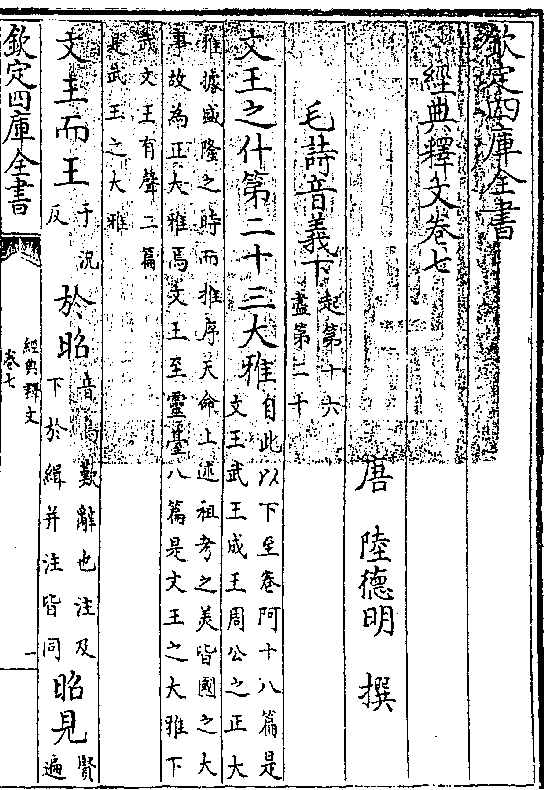 欽定四庫全書
經典釋文卷七
唐 陸德明 撰
毛詩音義下 起第十六 盡第二十
文王之什第二十三大雅 自此以下至卷阿十八篇是 文王武王成王周公之正大
雅據盛隆之時而推序天命上述祖考之美皆國之大
事故為正大雅焉文王至靈臺八篇是文王之大雅下
武文王有聲二篇
是武王之大雅
文王而王 于況 反 於昭 音烏歎辭也注及 下於緝并注皆同 昭見 賢 遍
欽定四庫全書
經典釋文
卷七
一